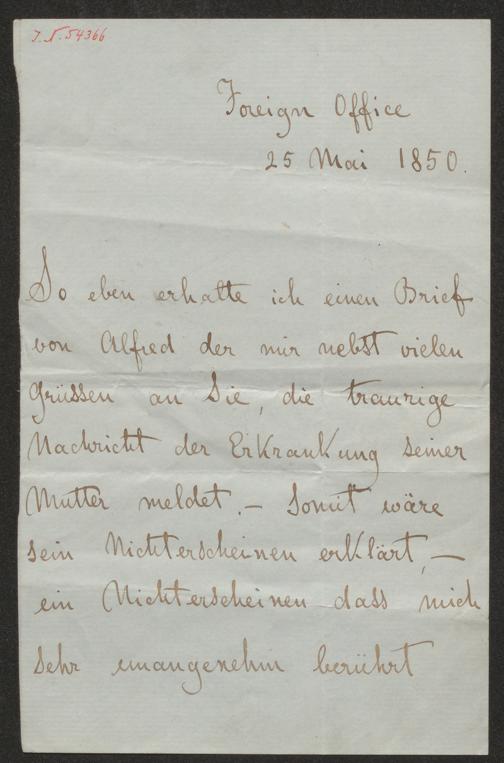 J. N. 54366
Foreign Office
25 Mai 1850.
So eben erhalte ich einen Brief
von Alfred der mir nebst vielen
Grüssen an Sie, die traurige
Nachricht der Erkrankung seiner
Mutter meldet. — Somit wäre
sein Nichterscheinen erklärt, —
ein Nichterscheinen dass mich
sehr unangenehm berührt